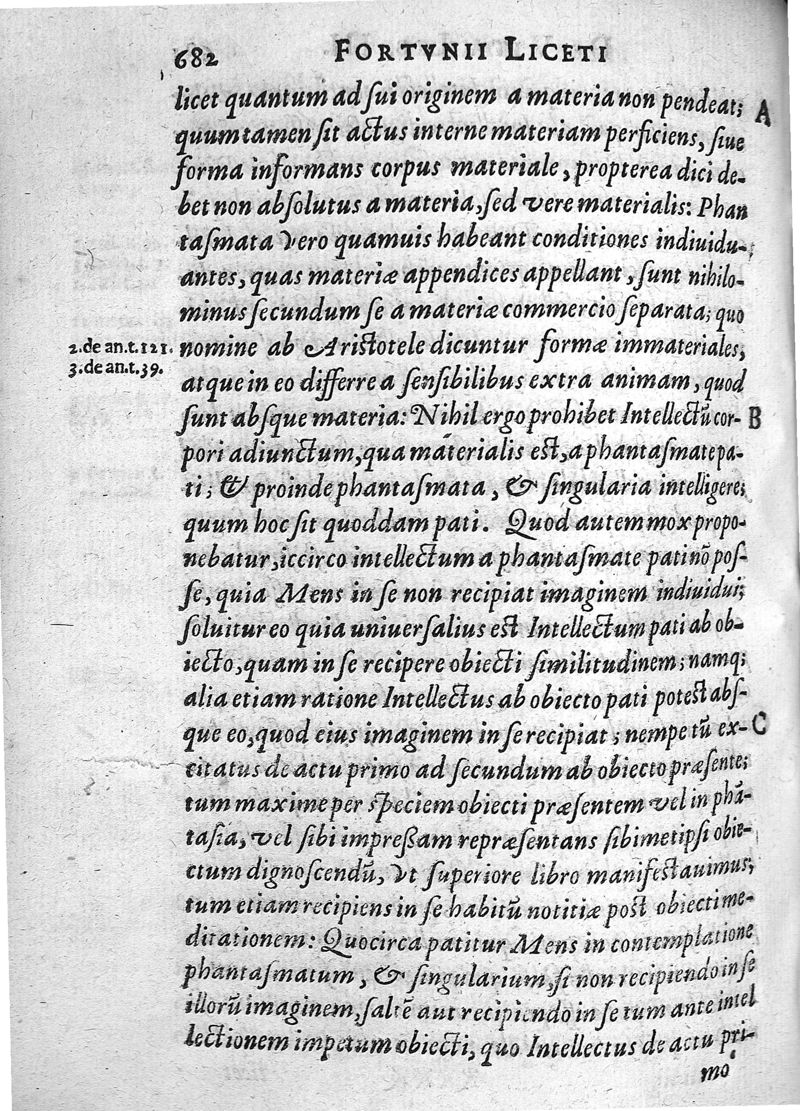 682 FORTVNII LICETI
licet quantum ad sui originem a materia non pendeat; A
quum tamen sit actus interne materiam perficiens, siue
forma informans corpus materiale, propterea dici de-
bet non absolutus a materia, sed vere materialis: Phan
tasmata vero quamuis habeant conditiones indiuidu-
antes, quas materiæ appendices appellant, sunt nihilo-
minus secundum se a materiæ commercio separata; quo
2. de an. t. 121. nomine ab Aristotele dicuntur formæ immateriales,
3. de an. t. 39. atque in eo differre a sensibilibus extra animam, quod
sunt absque materia: Nihil ergo prohibet Intellectū cor- B
pori adiunctum, qua máterialis est, a phantasmate pa-
ti; & proinde phantasmata, & singularia intelligere;
quum hoc sit quoddam pati. Quod autem mox propo-
nebatur, iccirco intellectum a phantasmate pati nō pos-
se, quia Mens in se non recipiat imaginem indiuidui;
soluitur eo quia uniuersalius est Intellectum pati ab ob-
iecto, quam in se recipere obiecti similitudinem; namq;
alia etiam ratione Intellectus ab obiecto pati potest abs-
que eo, quod eius imaginem in se recipiat; nempe tū ex- C
citatus de actu primo ad secundum ab obiecto præsente;
tum maxime per speciem obiecti præsentem vel in phā-
tasia, vel sibi impreßam repræsentans sibimetipsi obie-
ctum dignoscendū, vt superiore libro manifestauimus;
tum etiam recipiens in se habitū notitiæ post obiecti me-
ditationem: Quocirca patitur Mens in contemplatione
phantasmatum, & singularium, si non recipiendo in se
illorū imaginem, saltē aut recipiendo in se tum ante intel
lectionem impetum obiecti, quo Intellectus de actu pri-
mo